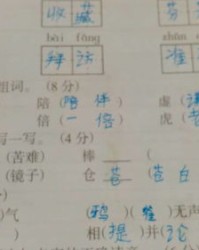 收藏 芬
bài fǎng
拜访 准
组词。（8分）
陪（陪伴） 虚（
倍（一倍） 虎（
写一写。（4分）
（苦难） 棒
（镜子） 仓 苍（苍白
）气 （鸦）（雀）无声
相（提）并（论